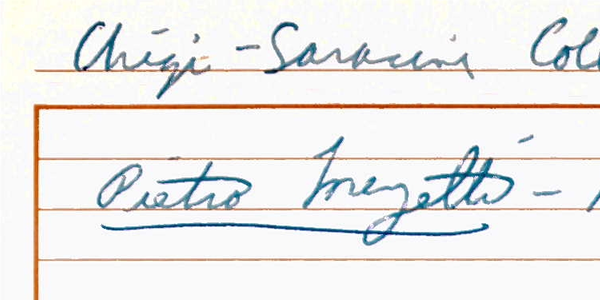 Chigi - Saracini Coll
Pietro Mezzetti -